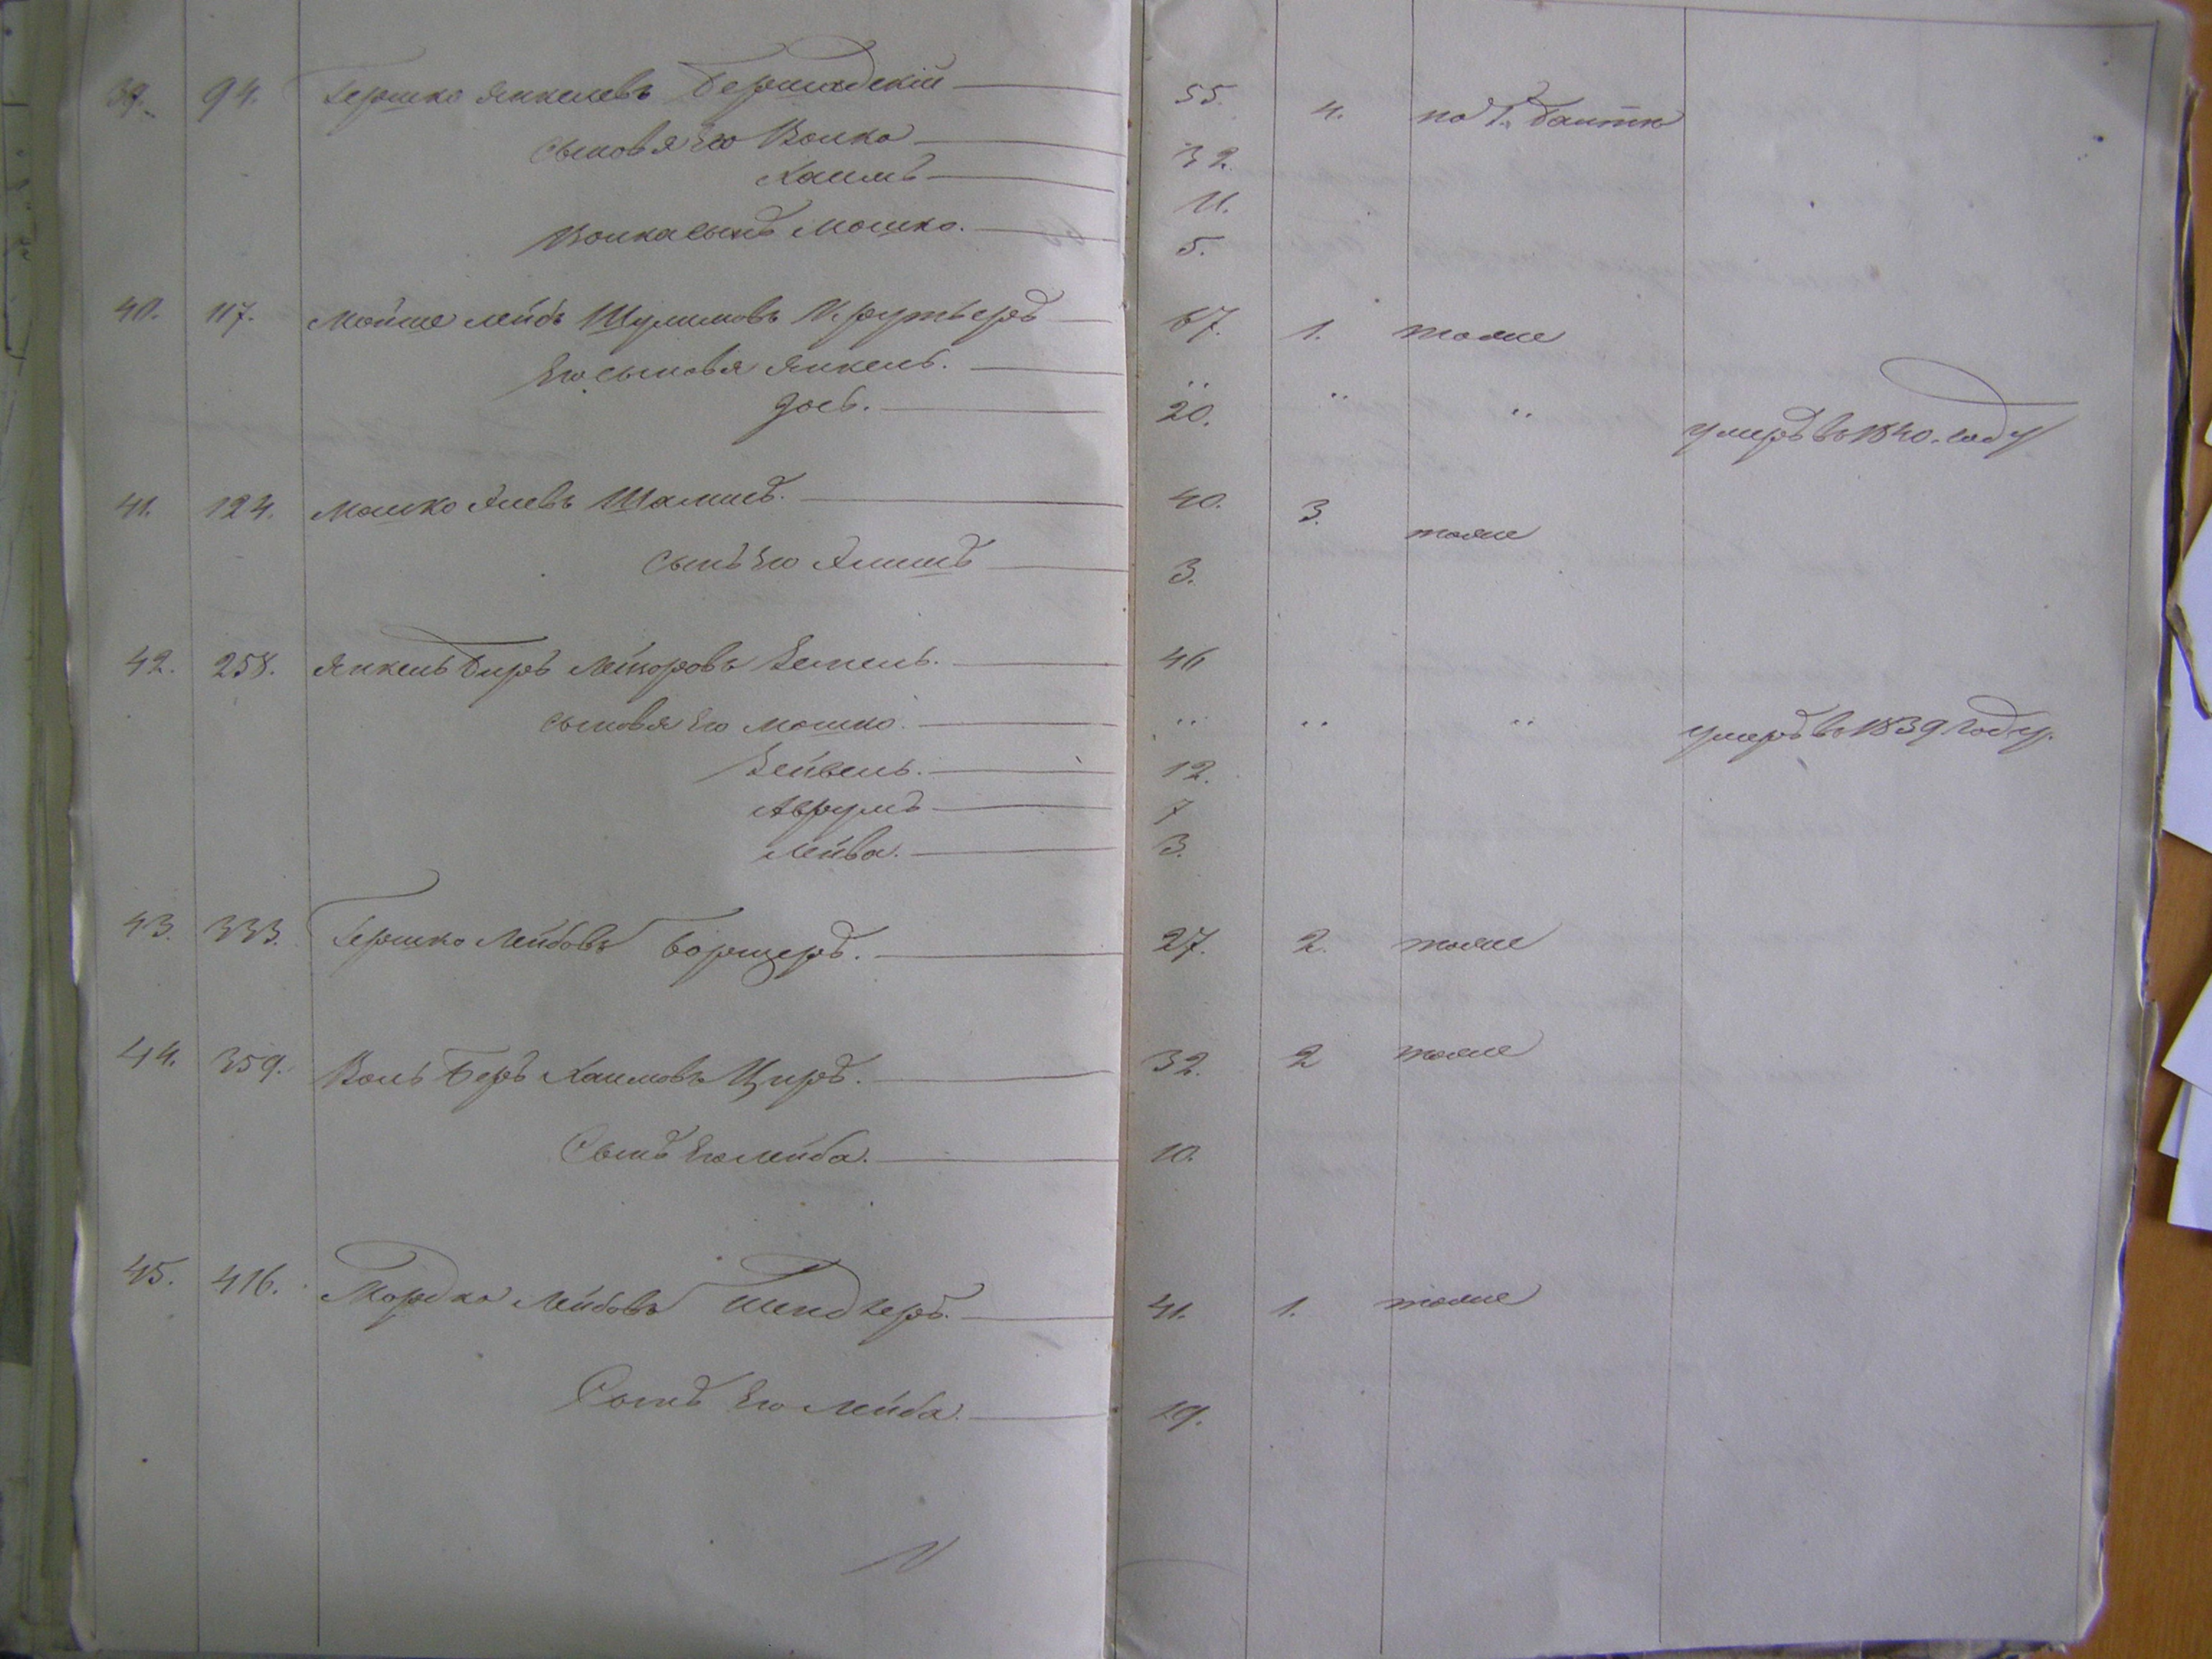 39. 94. Гершко Янкелевъ Бершадскій 55. 4. по г. Балтѣ
сыновья Его Волко 32.
Хаимъ 11.
Волка сынъ Мошко. 5.
40. 117. Мойше Лейбъ Шулимовъ 67. 1. тоже
Его сыновья Янкель. „ „ „ умеръ въ 1840. году
Йось. 20.
41. 124. Мошко 40. 3. тоже
сынъ Его 3.
42. 258. Янкель Беръ Лейзоровъ 46
сыновья Его Мошко. „ „ „ умеръ въ 1839 году.
Зейвель. 12.
Аврумъ 7
Лейба. 3.
43. 333. Гершко Лейбовъ 27. 2. тоже
44. 359. Воль Беръ Хаимовъ Циръ. 32. 2 тоже
Сынъ Его Лейба. 10.
45. 416. Мордко Лейбовъ 41. 1. тоже
Сынъ Его Лейба. 19.